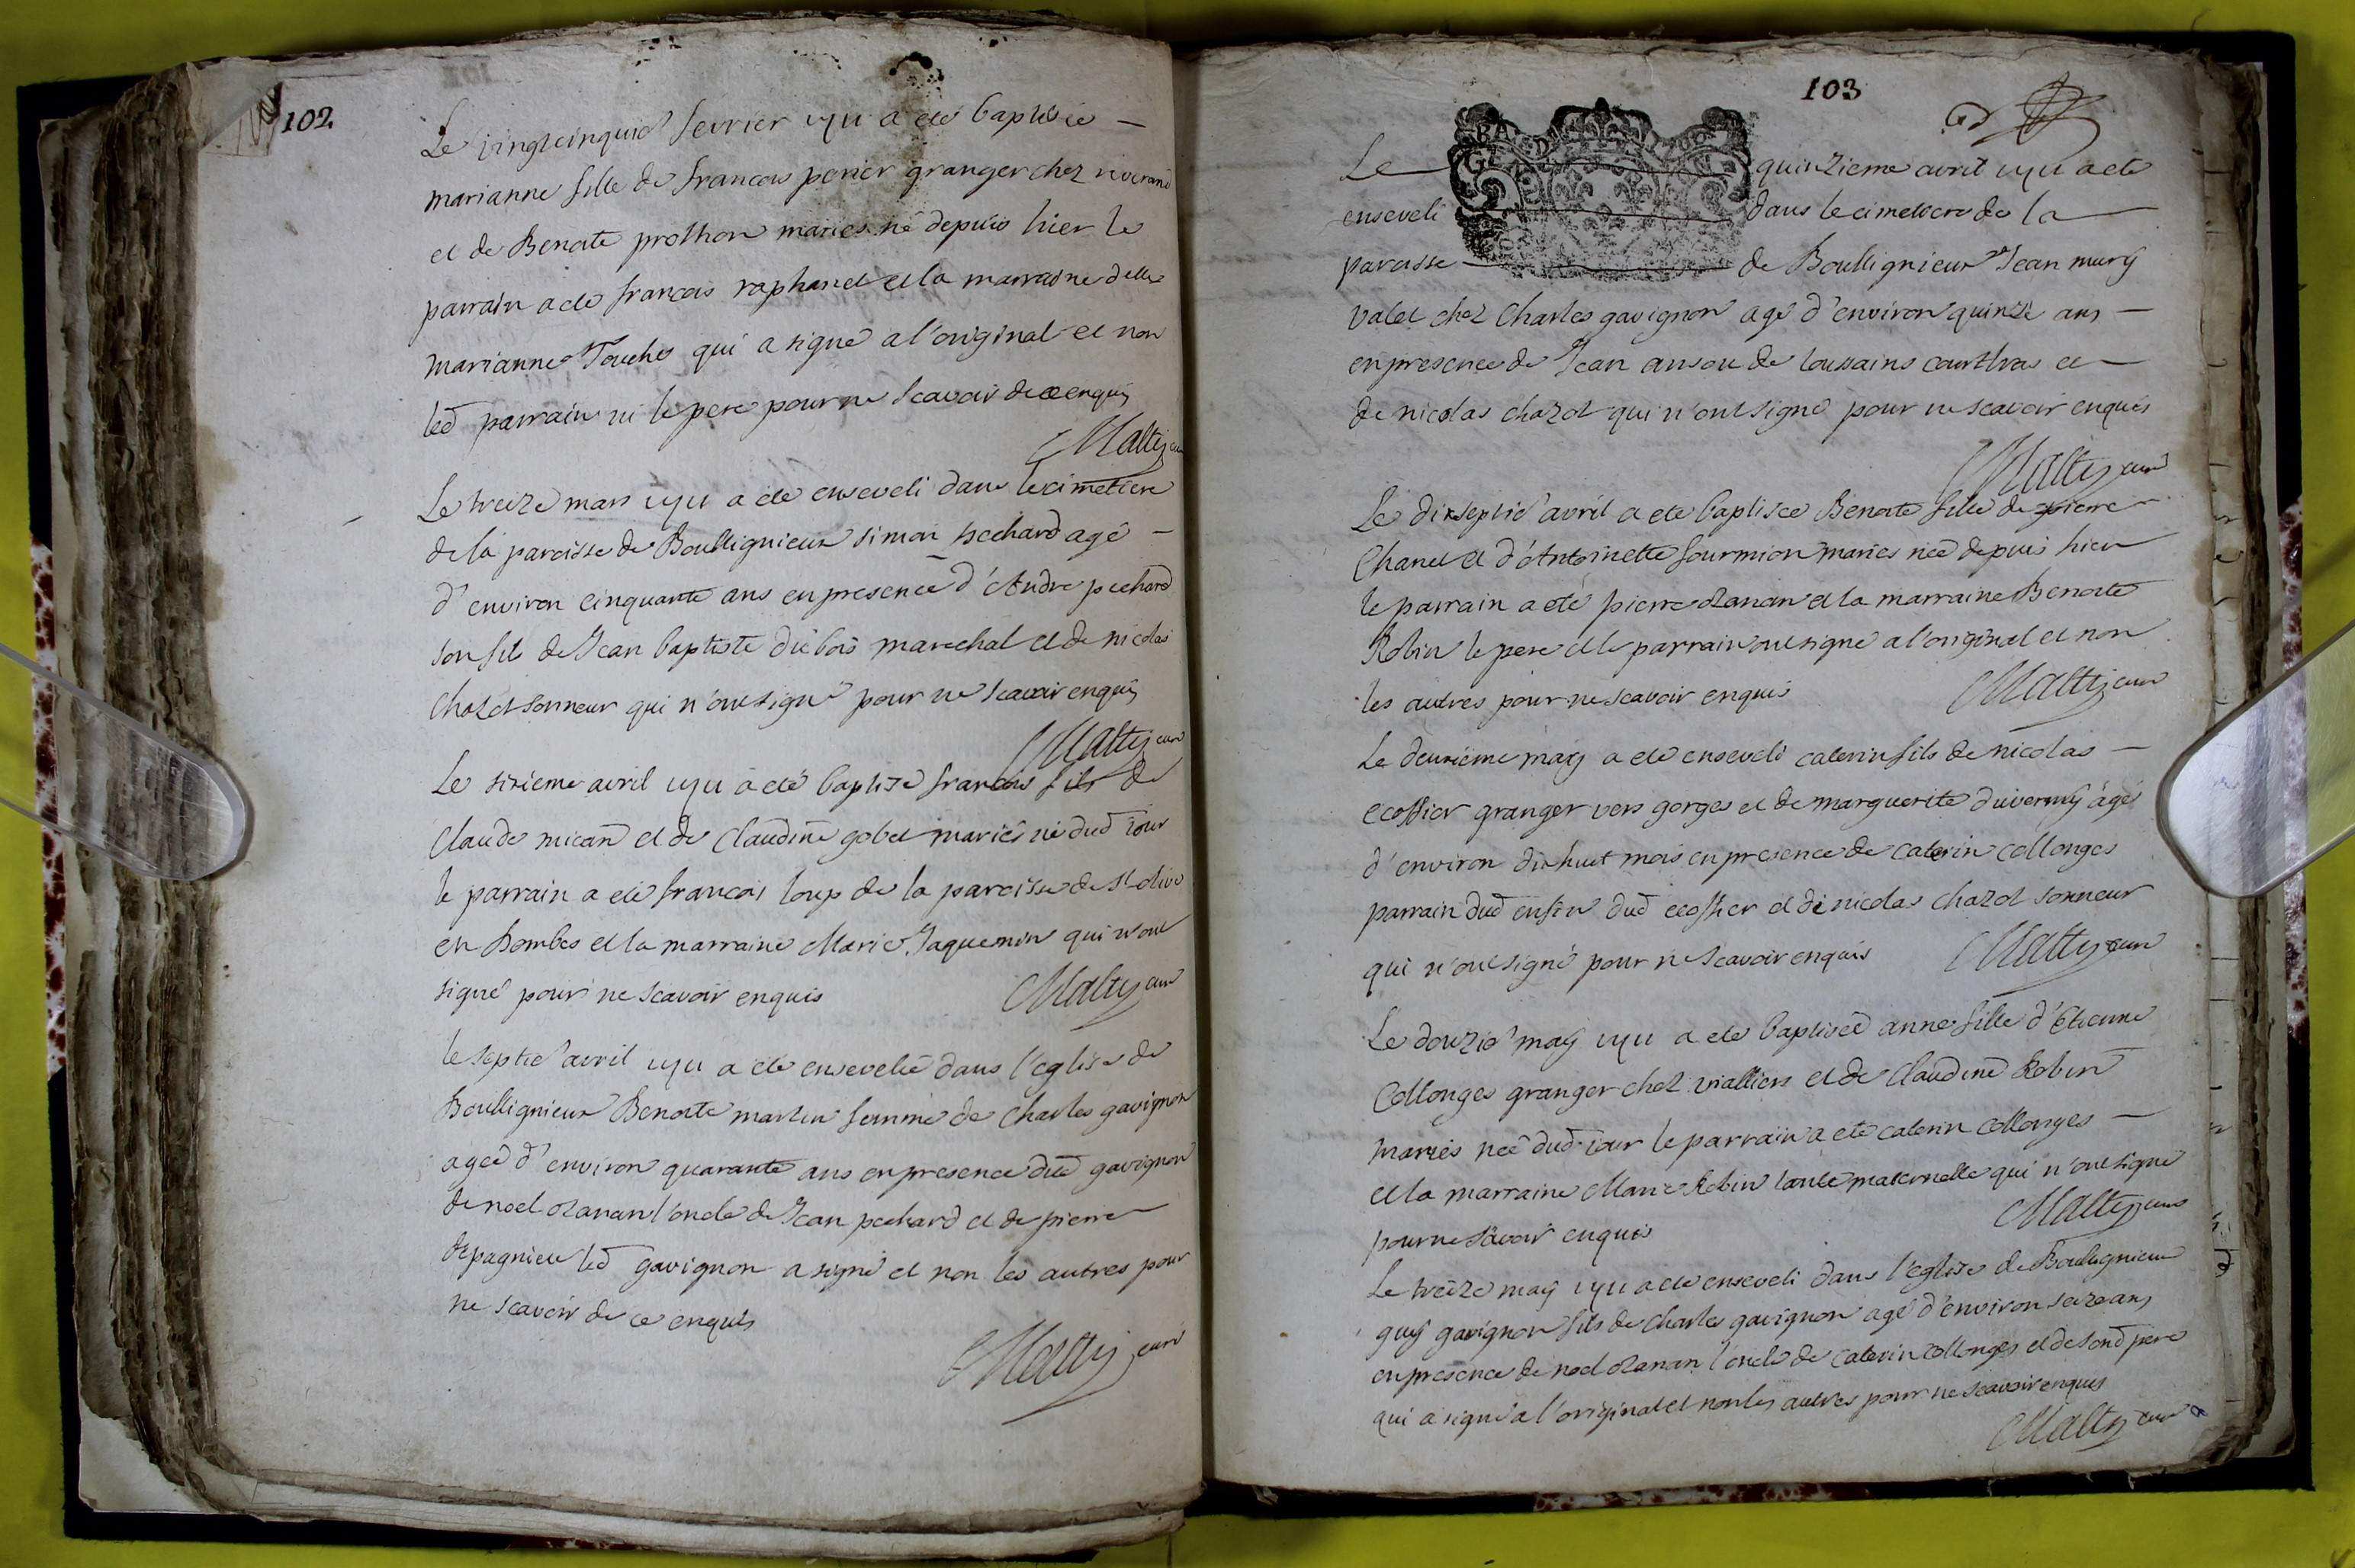 102
Le vingtcinquie fevrier a eté baptisée
marianne fille de francois perier granger chez riverand
et de Benoite prothon mariés né depuis hier le
parrain a eté francois raphanel et la marraine delle
marianne Touche qui a signé a l'original et non
led parrain ni le pere pour ne scavoir de ce enquis
cure
Le treize mars a eté enseveli dans le cimetiere
de la paroisse de Boullignieux simon pechard agé
d'environ cinquante ans en presence d'Andre pechard
son fils de Jean baptiste dubois marechal et de nicolas
chazot sonneur qui n'ont signé pour ne scavoir enquis
cure
Le sixieme avril a eté baptisé francois fils de
Claude micand et de Claudine gobet mariés né dud iour
le parrain a eté francois loup de la paroisse de St olive
en Dombes et la marraine Marie Jaquemin qui n'ont
signé pour ne scavoir enquis cure
le septie avril a eté ensevelie dans l'eglise de
Boullignieux Benoite martin femme de Charles gavignon
agée d'environ quarante ans en presence dud gavignon
de noel ozanan l'oncle de Jean pechard et de pierre
depagnieu led gavignon a signé et non les autres pour
ne scavoir de ce enquis
curé
103
Le quinzieme avril a eté
enseveli dans le cimetiere de la
paroisse de Boullignieux Jean mury
valet chez Charles gavignon agé d'environ quinze ans
en presence de Jean de toussains et
de nicolas chazot qui n'ont signé pour ne scavoir enquis
curé
Le dixseptie avril a eté baptisée Benoite fille de pierre
Chanel et d'Antoinette fourmion mariés née depuis hier
le parrain a eté pierre ozanan et la marraine Benoite
Robin le pere et le parrain ont signé a l'original et non
les autres pour ne scavoir enquis cure
Le deuxieme may a eté enseveli caterin fils de nicolas
ecoffier granger vers gorges et de marguerite duverney agé
d'environ dixhuit mois en presence de caterin collonges
parrain dud dud ecoffier et de nicolas chazot sonneur
qui n'ont signé pour ne scavoir enquis cure
Le douzie may a eté baptisée anne fille d'Etienne
Collonges granger chez vialliers et de Claudine Robin
mariés née dud iour le parrain a eté caterin collonges
et la marraine Marie Robin tante maternelle qui n'ont signé
pour ne scavoir enquis cure
Le treize may a eté enseveli dans l'eglise de Boulignieux
guy gavignon fils de Charles gavignon agé d'environ seize ans
en presence de noel ozanan l'oncle de caterin collonges et de sond pere
qui a signé a l'original et non les autres pour ne scavoir enquis
cure